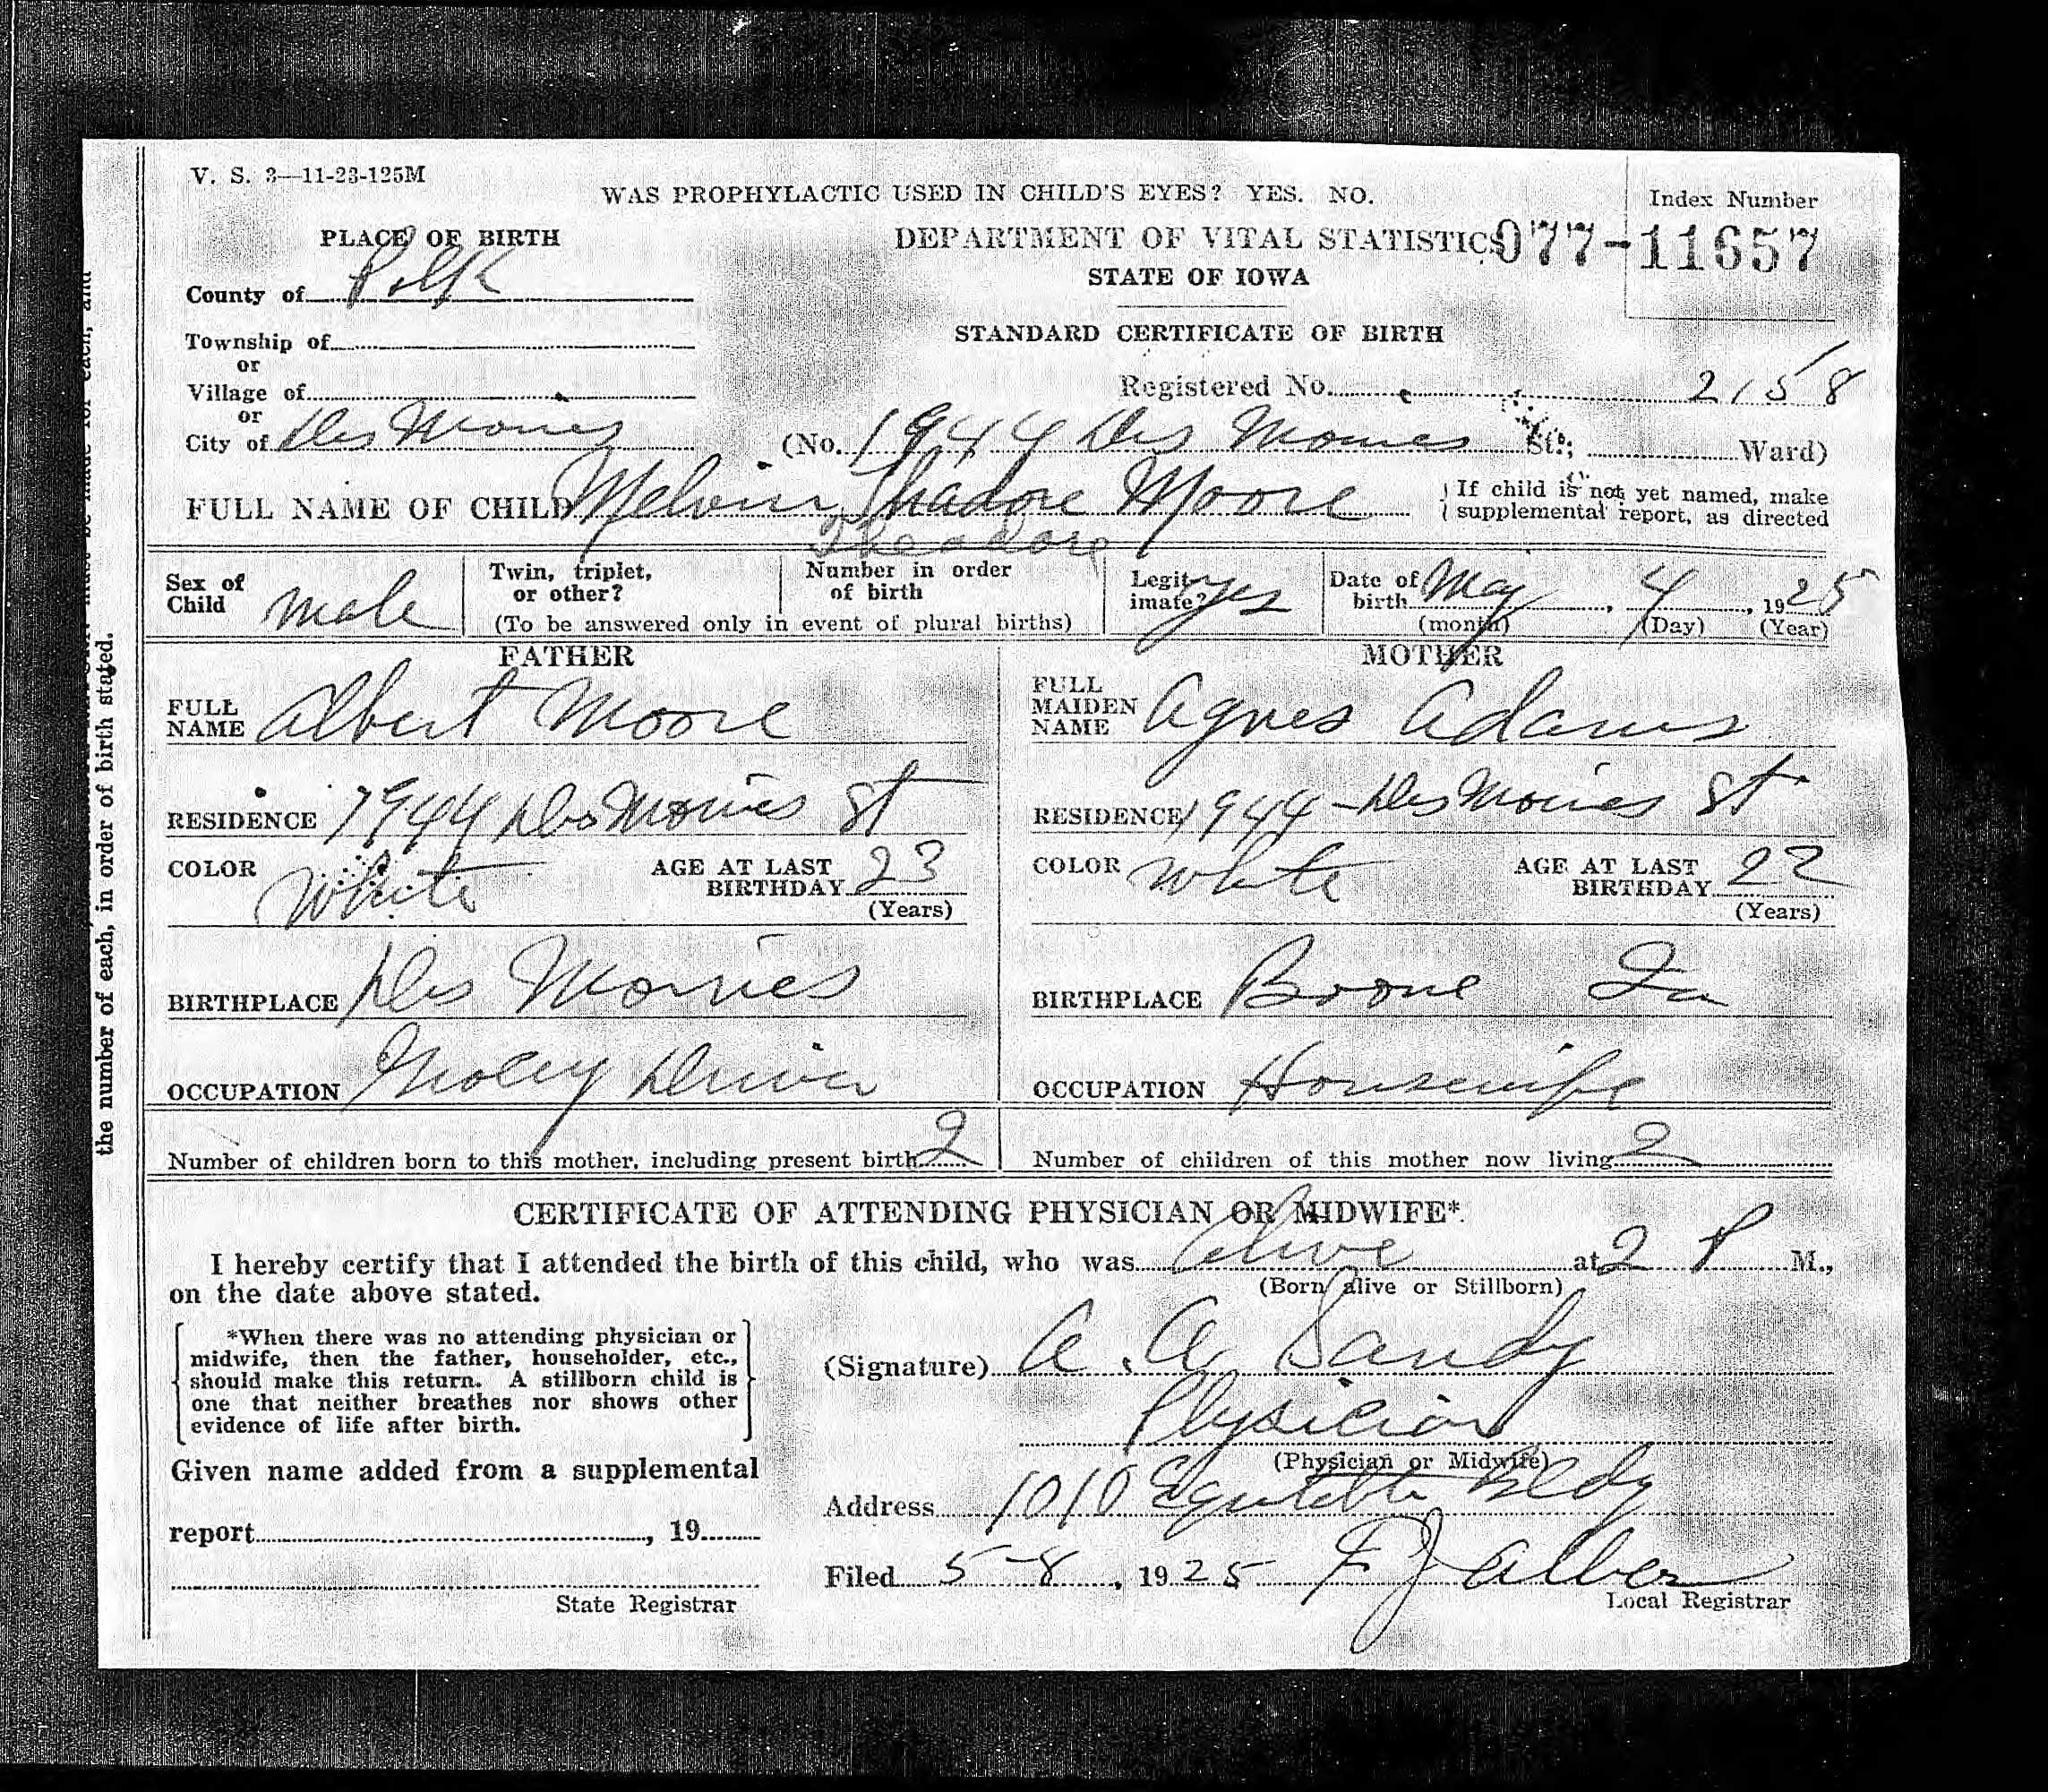 V. S. 3—11-23-125M
WAS PROPHYLACTIC USED IN CHILD'S EYES? YES. NO.
Index Number
077-11657
PLACE OF BIRTH
DEPARTMENT OF VITAL STATISTICS
STATE OF IOWA
County of Polk
Township of
or
STANDARD CERTIFICATE OF BIRTH
Village of
or
Registered No. 2158
City of Des Moines (No. 1944 Des Moines St.; Ward)
FULL NAME OF CHILD Melvin Thadore Moore
Theodore
If child is not yet named, make
supplemental report, as directed
Sex of
Child male
Twin, triplet,
or other?
Number in order
of birth
(To be answered only in event of plural births)
Legit-
imate? yes
Date of
birth May, 4, 1925
(month) (Day) (Year)
FATHER
FULL
NAME Albert Moore
RESIDENCE 1944 Des Moines St
COLOR White
AGE AT LAST
BIRTHDAY 23
(Years)
BIRTHPLACE Des Moines
OCCUPATION Driver
Number of children born to this mother, including present birth 2
MOTHER
FULL
MAIDEN
NAME Agnes Adams
RESIDENCE 1944 - Des Moines St
COLOR White
AGE AT LAST
BIRTHDAY 22
(Years)
BIRTHPLACE Boone Ia
OCCUPATION Housewife
Number of children of this mother now living 2
CERTIFICATE OF ATTENDING PHYSICIAN OR MIDWIFE*.
I hereby certify that I attended the birth of this child, who was Alive at 2 P M.,
on the date above stated.
(Born alive or Stillborn)
*When there was no attending physician or
midwife, then the father, householder, etc.,
should make this return. A stillborn child is
one that neither breathes nor shows other
evidence of life after birth.
(Signature)
Physician
(Physician or Midwife)
Given name added from a supplemental
report, 19
State Registrar
Address 1010 Equitable Bldg
Filed 5-8, 1925 F J Alber
Local Registrar
the number of each, in order of birth stated.